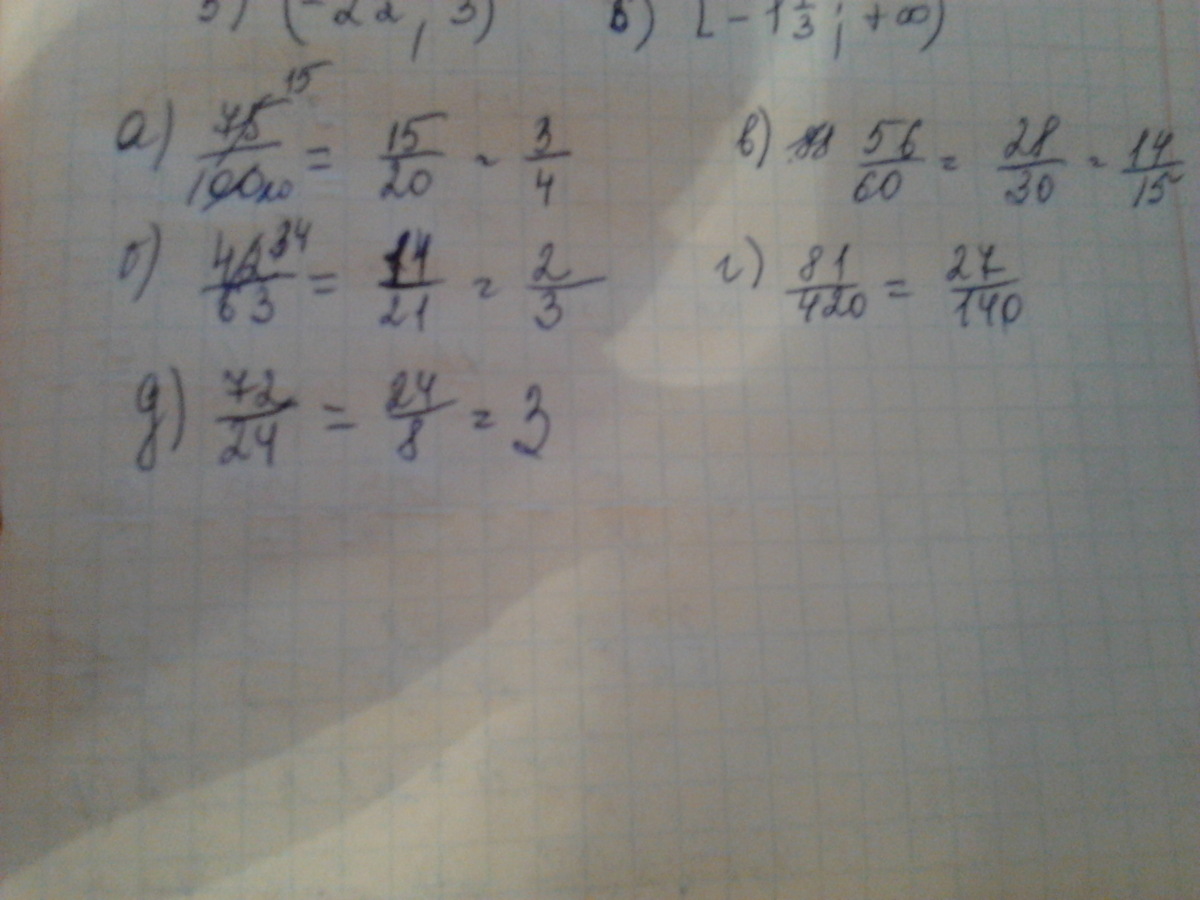 (-22; 3) в) [-1 1/3; +∞)
а) 75/100 = 15/20 = 3/4 в) 56/60 = 28/30 = 14/15
15 20
б) 42/63 = 14/21 = 2/3 г) 81/420 = 27/140
д) 72/24 = 24/8 = 3